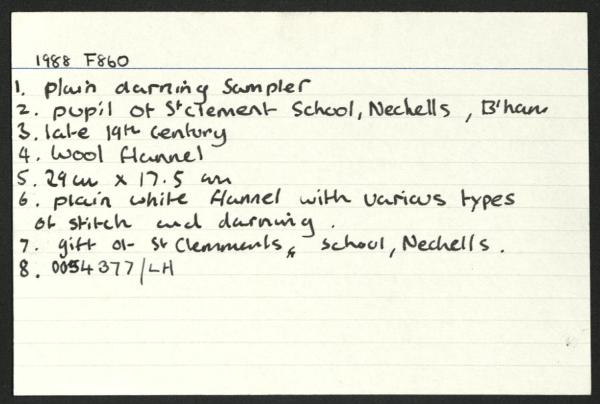 1988 F860
1. plain darning sampler
2. pupil of St Clement School, Nechells, B'ham
3. late 19th century
4. Wool flannel
5. 29cm x 17.5 cm
6. plain white flannel with various types
of stitch and darning.
7. gift of St Clemments, school, Nechells.
8. 0054377/LH